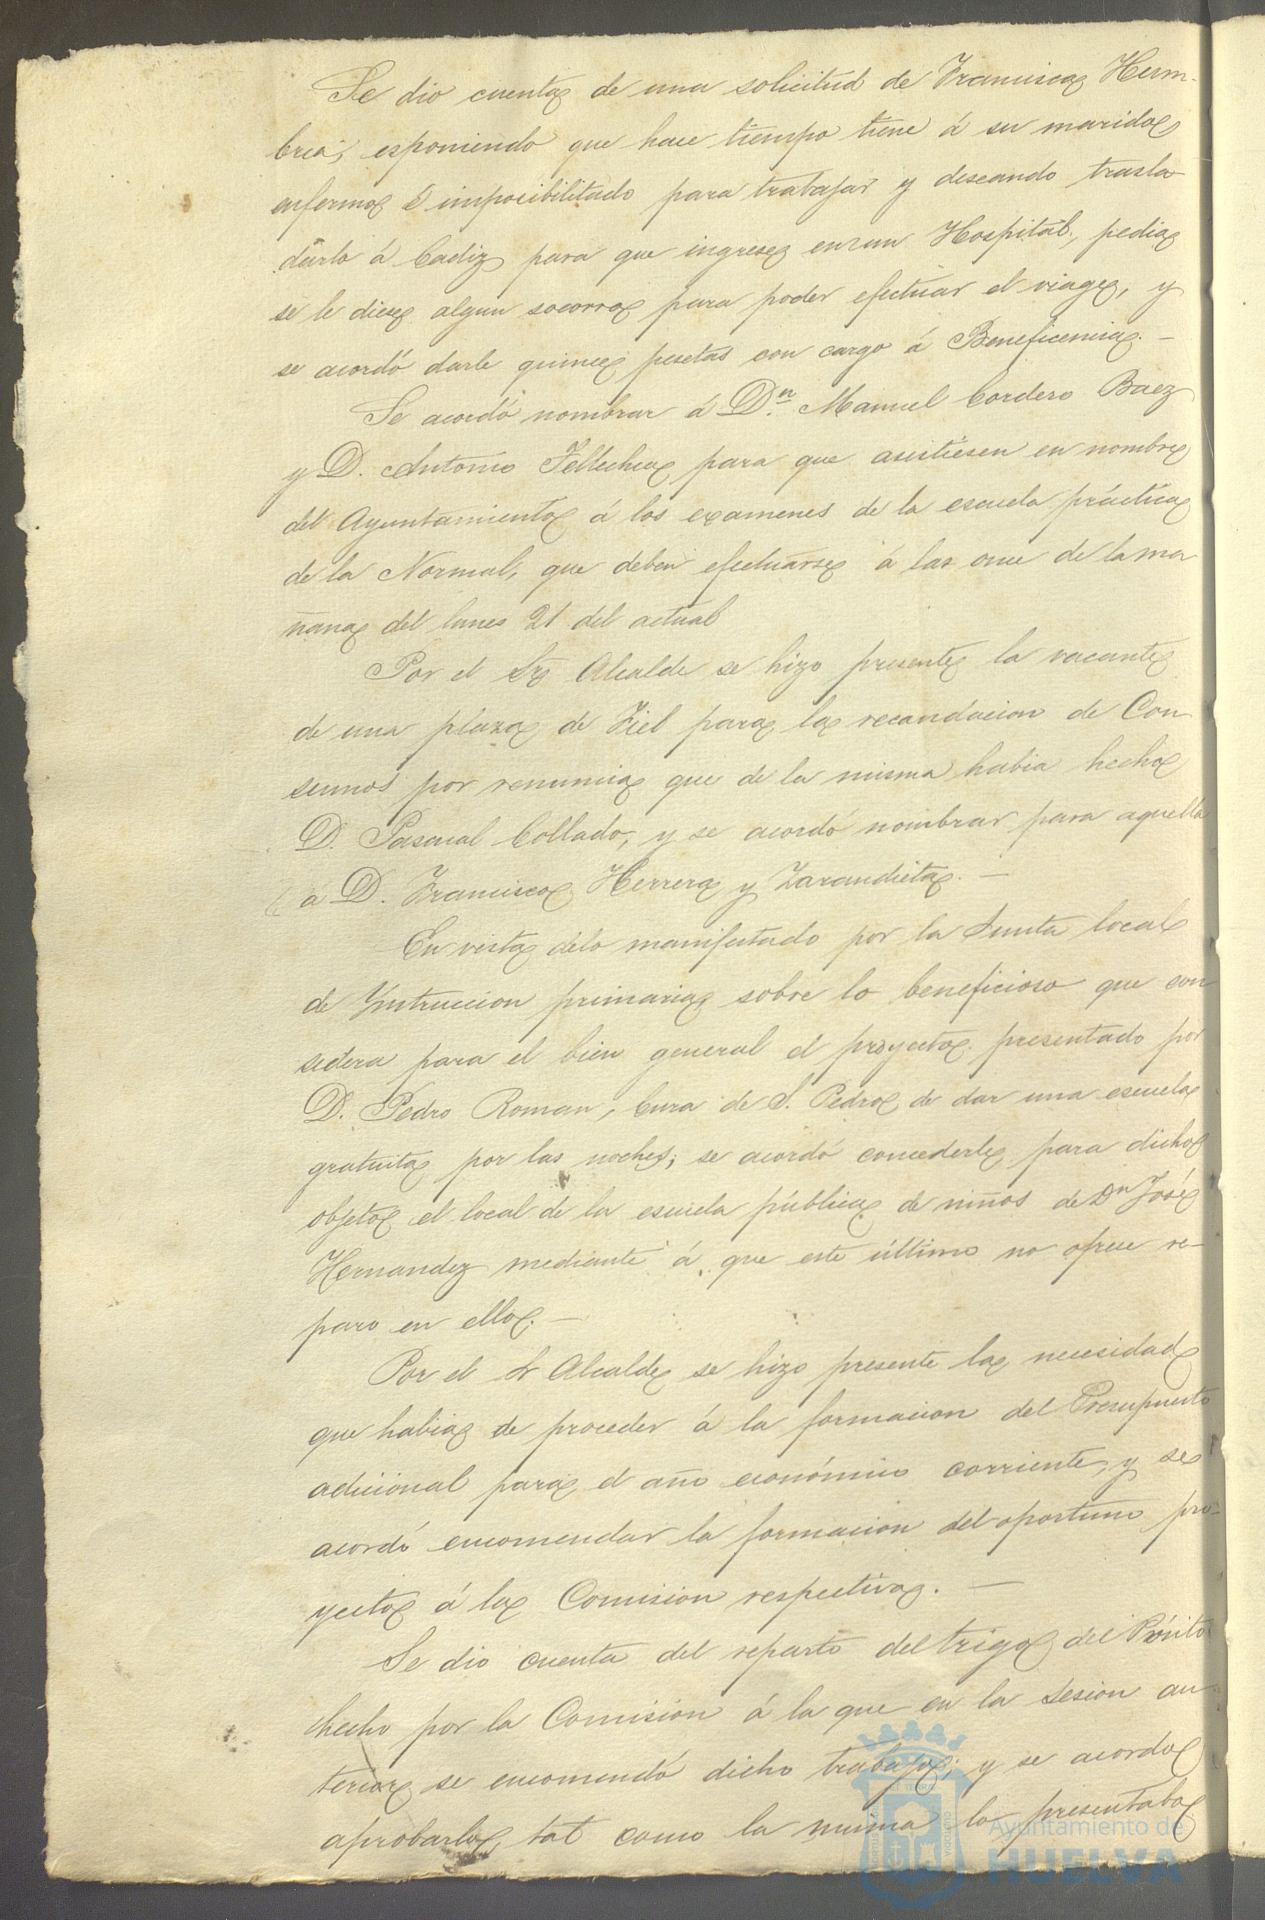 Se dio cuenta de una solicitud de Francisca Hem-
bra, esponiendo que hace tiempo tiene á su marido
enfermo é imposibilitado para trabajar y deseando trasla
darlo á Cadiz para que ingrese en un Hospital, pedia
se le diese algun socorro para poder efectuar el viage, y
se acordó darle quince pesetas con cargo á Beneficencia. —
Se acordó nombrar á Dn. Manuel Cordero Baez
y D. Antonio Tellechea para que asistiesen en nombre
del Ayuntamiento á los examenes de la escuela práctica
de la Normal, que deben efectuarse á las once de la ma
ñana del lunes 21 del actual
Por el Sr. Alcalde se hizo presente la vacante
de una plaza de Fiel para la recaudacion de Con
sumos por renuncia que de la misma habia hecho
D. Pascual Collado, y se acordó nombrar para aquella
á D. Francisco Herrera y Zarandieta. —
En vista de lo manifestado por la Junta local
de Yntruccion primaria sobre lo beneficioso que con
sidera para el bien general el proyecto presentado por
D. Pedro Roman, Cura de S. Pedro de dar una escuela
gratuita por las noches; se acordó concederle para dicho
objeto el local de la escuela pública de niños de Dn José
Hernandez mediante á que este último no ofrece re-
paro en ello. —
Por el Sr Alcalde se hizo presente la necesidad
que habia de proceder á la formacion del Presupuesto
adicional para el año económico corriente, y se
acordó encomendar la formacion del oportuno pro-
yecto á la Comision respectiva. —
Se dio cuenta del reparto del trigo del Pósito
hecho por la Comision á la que en la sesion an
terior se encomendó dicho trabajo; y se acordo
aprobarlo, tal como la misma lo presentaba
Ayuntamiento de
HUELVA